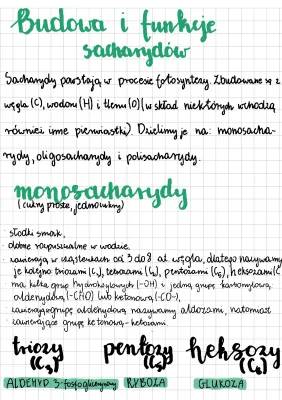 Budowa i funkcje
sacharydów
Sacharydy powstają w procesie fotosyntezy. Zbudowane są z
węgla (C), wodoru (H) i tlenu (O) (w skład niektórych wchodzą
również inne pierwiastki). Dzielimy je na: monosacha-
rydy, oligosacharydy i polisacharydy.
monosacharydy
(cukry proste, jednocukry)
· słodki smak,
· dobrze rozpuszczalne w wodzie.
· zawierają w cząsteczkach od 3 do 8 at. węgla, dlatego nazywamy
je kolejno triozami (C₃), tetrozami (C₄), pentozami (C₅), heksozami (C
· ma kilka grup hydroksylowych (-OH) i jedną grupę karbonylową
aldehydową (-CHO) lub ketonową (-CO-),
· zawierające grupę aldehydową nazywamy aldozami, natomiast
zawierające grupę ketonową - ketozami.
triozy pentozy heksozy
(C₃) (C₅)
ALDEHYD 3-fosfoglicerynowy RYBOZA GLUKOZA